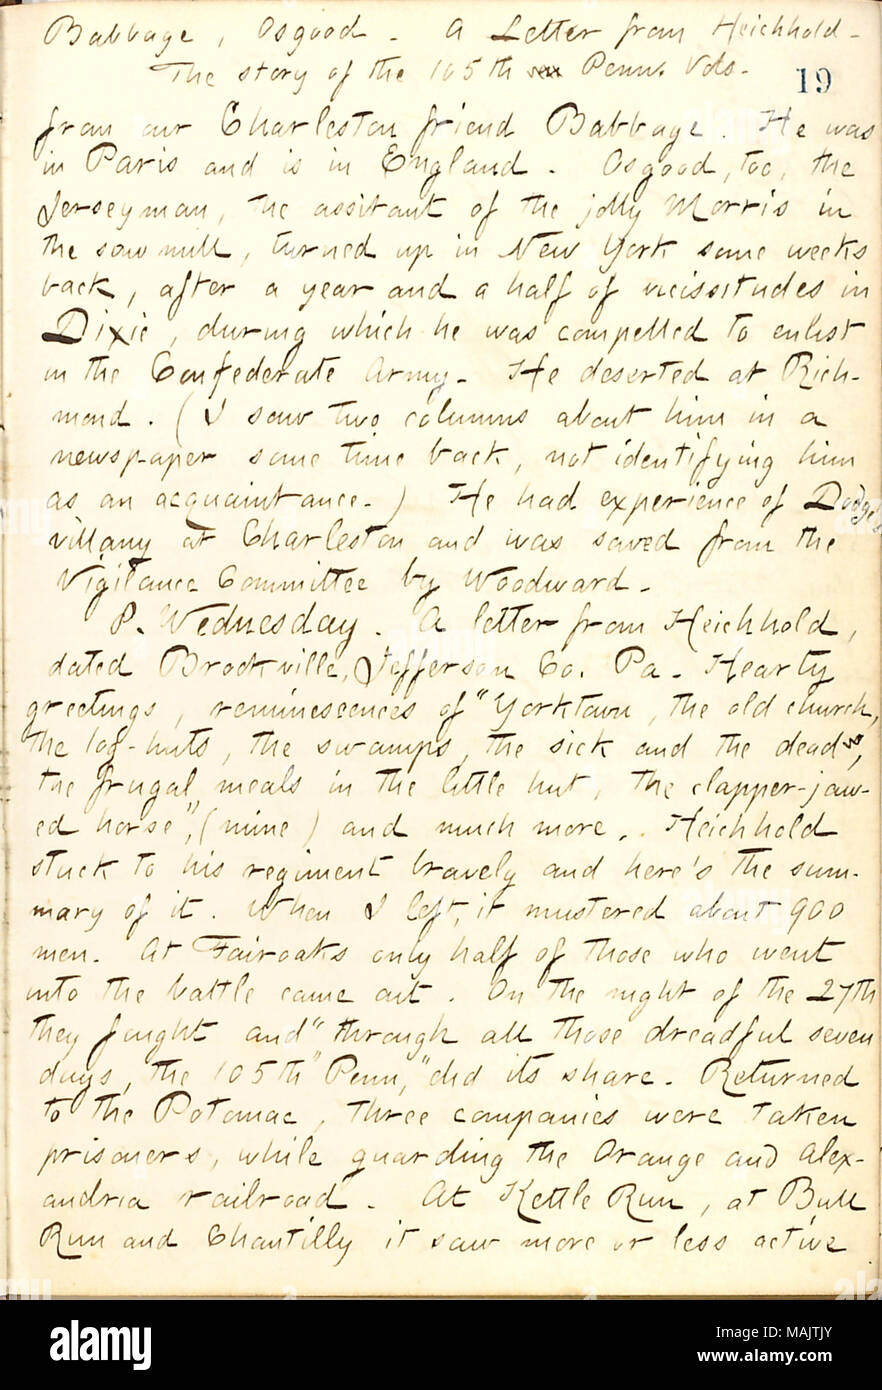 Babbage, Osgood. A Letter from Heichhold.
The story of the 105th Penn. Vols.
19
from our Charleston friend Babbage. He was
in Paris and is in England. Osgood, too, the
Jerseyman, the assitant of the jolly Morris in
the saw mill, turned up in New York some weeks
back, after a year and a half of vicissitudes in
Dixie, during which he was compelled to enlist
in the Confederate Army. He deserted at Rich-
mond. (I saw two columns about him in a
newspaper some time back, not identifying him
as an acquaintance.) He had experience of Dodge's
villany at Charleston and was saved from the
Vigilance Committee by Woodward.
8. Wednesday. A letter from Heichhold,
dated Brookville, Jefferson Co. Pa. Hearty
greetings, reminescences of "Yorktown, the old church,
the log-huts, the swamps, the sick and the dead,
the frugal meals in the little hut, the clapper-jaw-
ed horse", (mine) and much more. Heichhold
stuck to his regiment bravely and here's the sum-
mary of it. When I left, it mustered about 900
men. At Fairoaks only half of those who went
into the battle came out. On the night of the 27th
they fought and "through all those dreadful seven
days, the 105th "Penn," did its share. Returned
to the Potomac, three companies were taken
prisoners, while guarding the Orange and Alex-
andria railroad. At Kettle Run, at Bull
Run and Chantilly it saw more or less active
alamy
Image ID: MAJTJY
www.alamy.com